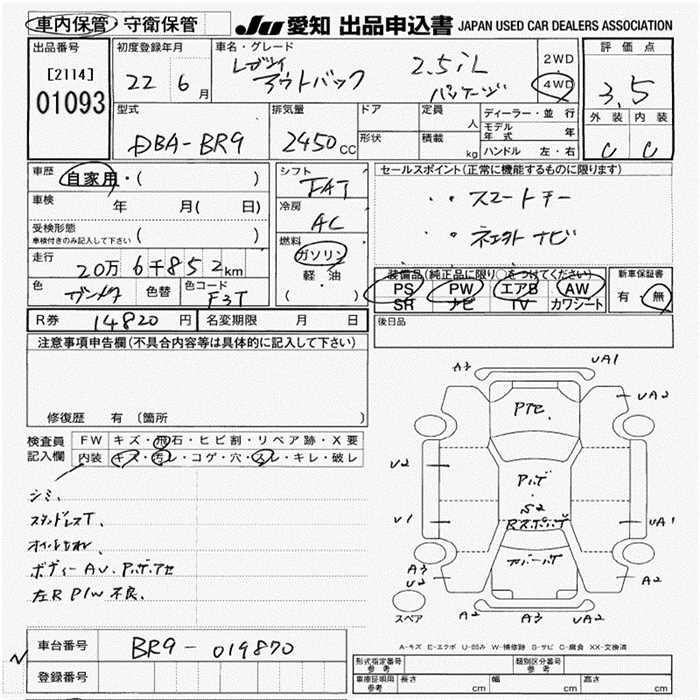 車内保管 守衛保管
JU 愛知 出品申込書 JAPAN USED CAR DEALERS ASSOCIATION
出品番号 [2114] 01093
初度登録年月 22 6 月
車名・グレード レガシィ アウトバック 2.5iL パッケージ
2WD 4WD
評価点 3.5
外装 内装
C C
型式 DBA-BR9
排気量 2450 CC
ドア 形状
定員 人
積載 kg
ディーラー・並行
モデル年式 年
ハンドル 左・右
車歴 自家用・( )
車検 年 月( 日)
受検形態 車検付きのみ記入して下さい ( )
走行 20万6千852km
色 ガンメタ 色替 色コード F3T
シフト FAT
冷房 AC
燃料 ガソリン 軽・油 ( )
セールスポイント(正常に機能するものに限ります)
・・スマートキー
・・ ナビ
装備品(純正品に限り○をつけてください)
PS PW エアB AW
SR ナビ TV カワシート
新車保証書 有・無
R券 14820円 名変期限 月 日
後日品
注意事項申告欄(不具合内容等は具体的に記入して下さい)
修復歴 有 〔箇所 〕
検査員記入欄 FW キズ・飛石・ヒビ割・リペア跡・X要
内装 キズ・汚レ・コゲ・穴・スレ・キレ・破レ
シミ、
スタッドレスT、
オイルモレ、
ボディー AU、P.ボ.アセ
左R P/W 不良、
A3 UA1
UA2 UA2
Pアセ
U2
P.ボ・S2
U1 Rスポ.ボ UA1
A3 U2 A2
スペア A2 A3 UA2
A-キズ E-エクボ U-凹み W-補修跡 S-サビ C-腐食 XX-交換済
車台番号 BR9-019870
登録番号
形式指定番号 参考 類別区分番号 参考
車庫証明用 参考 長さ cm 幅 cm 高さ cm